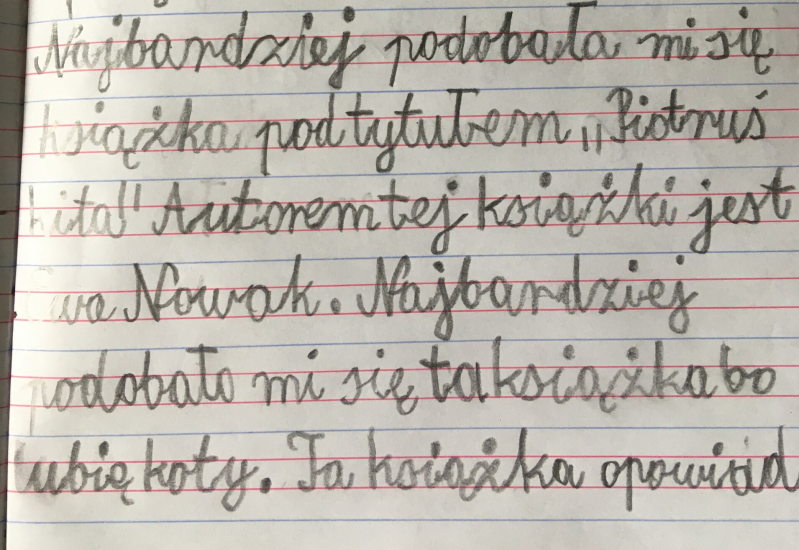 Najbardziej podobała mi się
książka pod tytułem „Piotruś
i kita" Autorem tej książki jest
Ewa Nowak. Najbardziej
podobało mi się ta książka bo
lubię koty. Ta książka opowiad